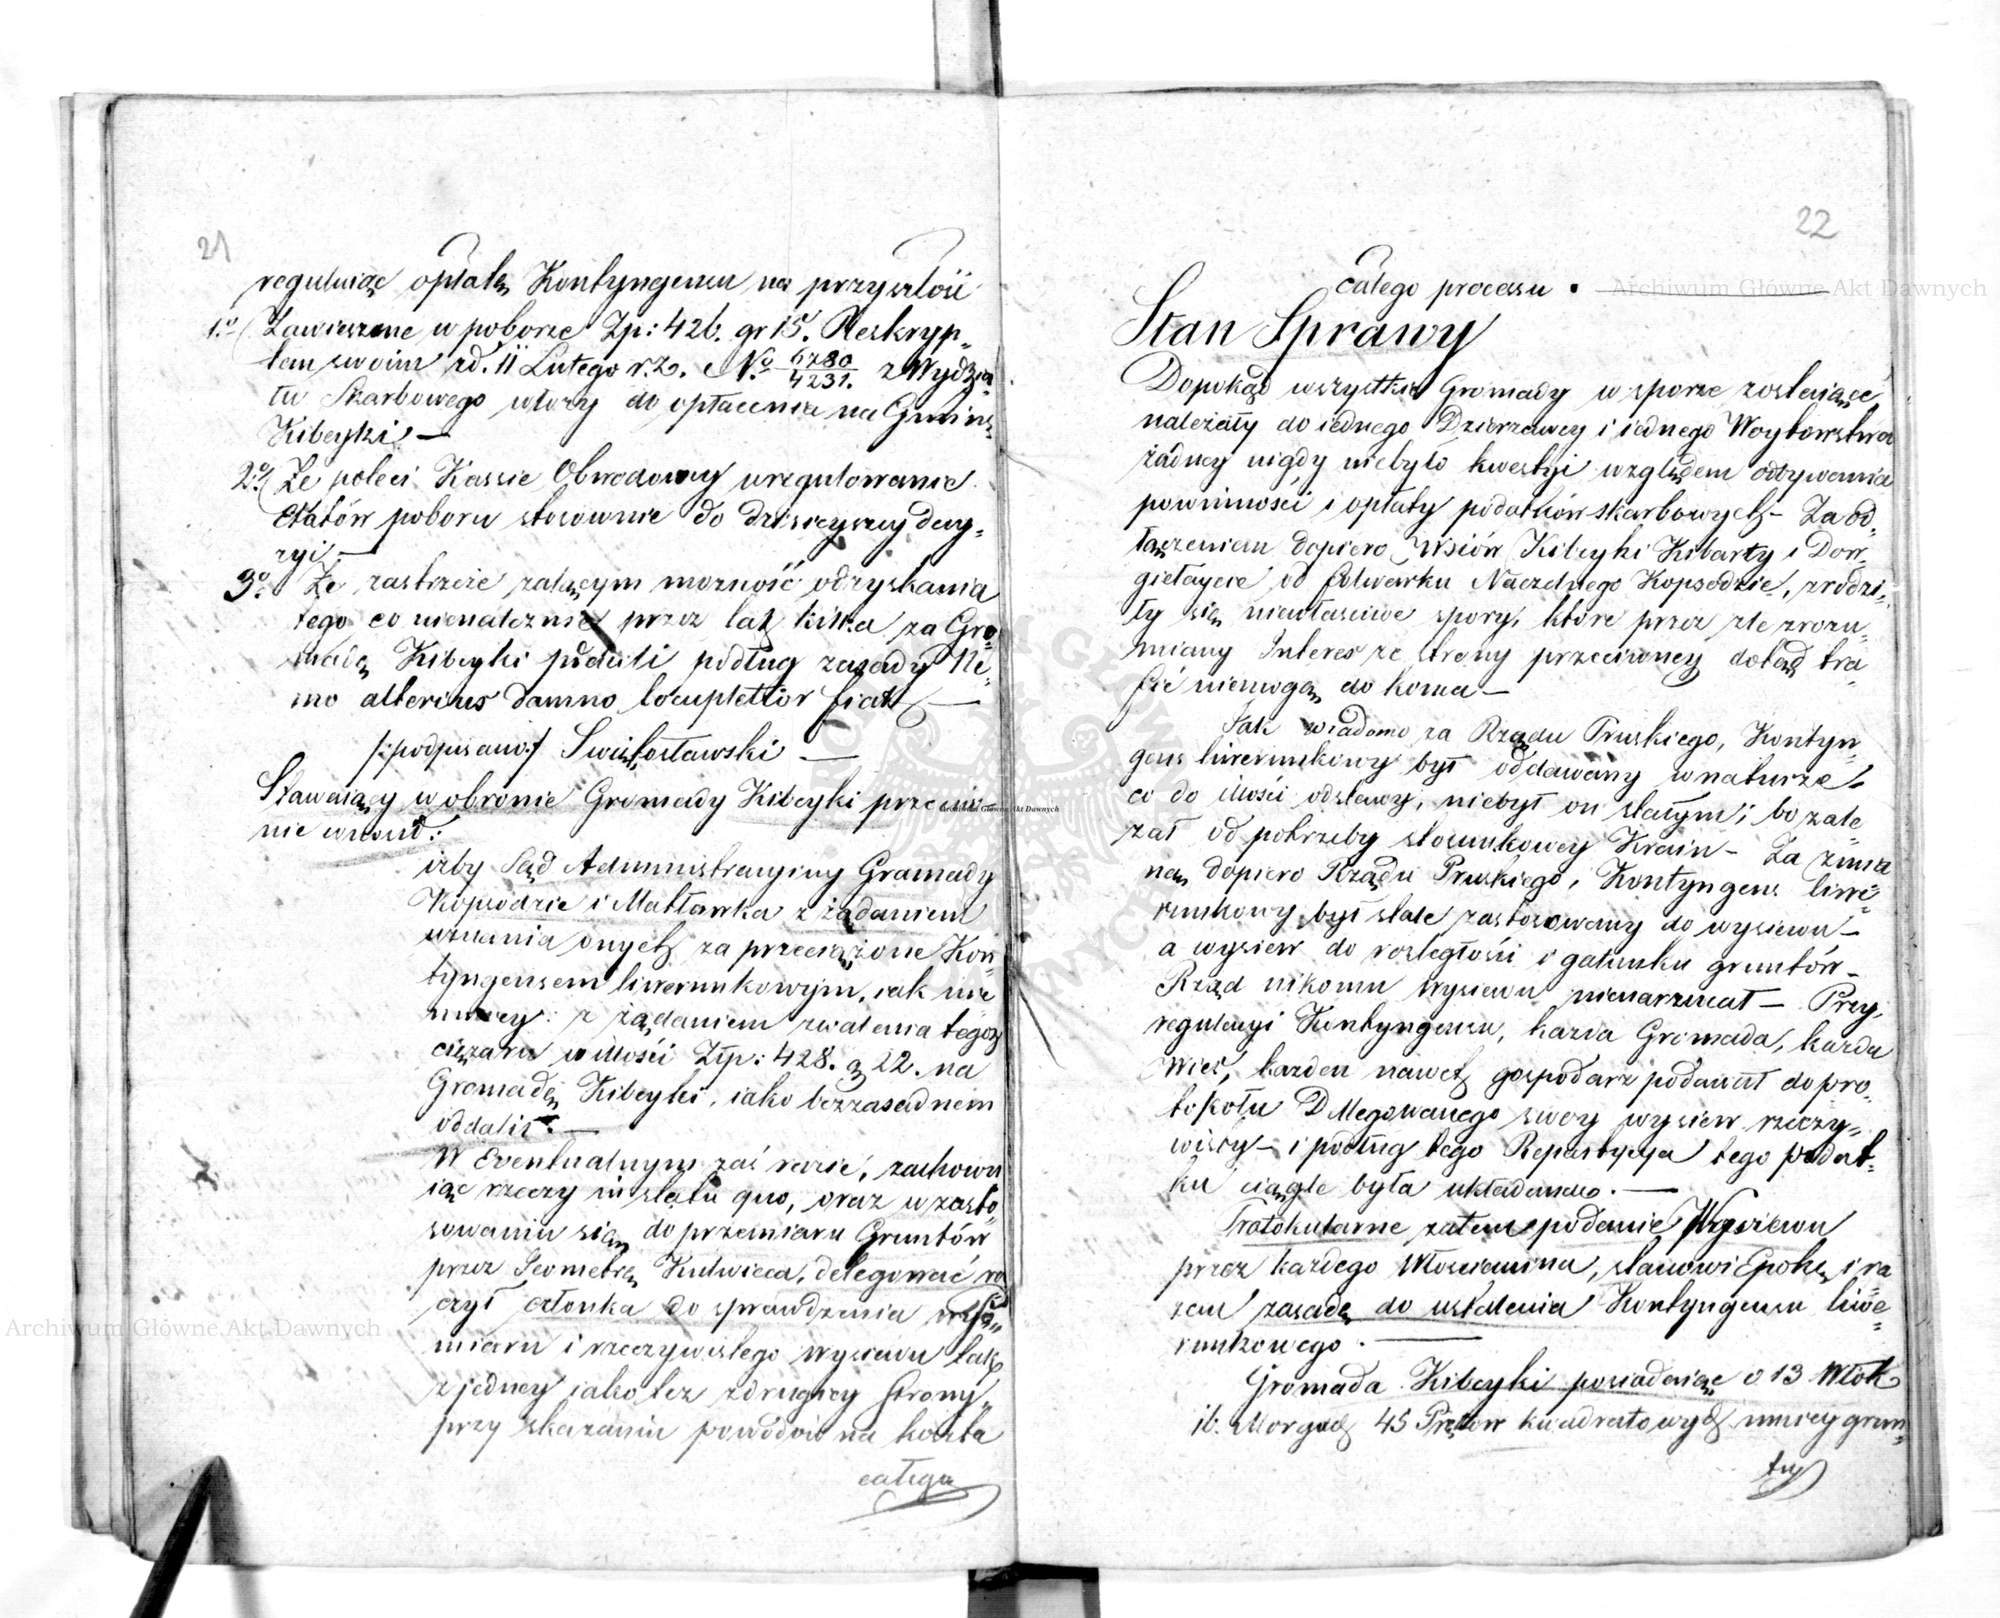 21
regulując opłatę Kontyngensu na przyszłość
1.o/ Zawieszone w poborze Zp: 426. gr 15. Reskryp„
tem swoim zd. 11 Lutego r. z. No 6280/4231. z Wydzia
łu Skarbowego włoży do opłacenia na Gminę
Kibeyki —
2.o/ Że poleci Kassie Obwodowey uregulowanie
Etatów poboru stosownie do dzisieyszey decy„
zyi. —
3.o Że zastrzeże żalącym możność odzyskania
tego co nienależnie przez lat kilka za Gro„
madę Kibeyki płacili podług zasady Ne„
mo alterius damno locupletior fiat —
/:podpisano:/ Swiętosławski —
Stawaiący w obronie Gromady Kibeyki przeciw„
nie wnosił:
iżby Sąd Administracyiny Gromady
Kopsodzie i Matławka z żądaniem
uznania onych za przeciążone Kon„
tyngensem liwerunkowym, iak nie
mniey: z żądaniem zwalenia tegoż
ciężaru w ilości Złp: 428. g 22. na
Gromadę Kibeyki, iako bezzasadnem
oddalił. —
W Eventualnym zaś razie, zachowu
iąc rzeczy in statu quo, oraz w zasto
sowaniu się do przemiaru Gruntów
przez Geometrę Kulwieca, delegować ra
czył członka do sprawdzenia rozsa„
miaru i rzeczywistego Wysiewu tak
z jedney iako też z drugiey Strony„
przy skazaniu powodów na koszta
całego
22
całego processu. —
Stan Sprawy
Dopokąd wszystkie Gromady w sporze zostaiące,
należały do iednego Dzierzawcy i iednego Woytowstwa
żadney nigdy niebyło kwestyi względem odbywania
powinności i opłaty podatków skarbowych — Za od„
łączeniem dopiero Wsiów Kibeyki Kibarty i Dow„
giełaycie od folwarku Naczelnego Kopsodzie, zrodzi„
ły się niewłaściwe spory, które przez źle zrozu„
miany Interes ze strony przeciwney dotąd tra„
fić niemogą do końca —
Jak wiadomo za Rządu Pruskiego, Kontyn„
gens liwerunkowy był oddawany w naturze
co do ilości odstawy, niebył on stałym; bo zale„
żał od potrzeby stosunkowey Kraiu — Za zmia
ną dopiero Rządu Pruskiego, Kontyngens liwe„
runkowy był stale zastosowany do wysiewu —
a wysiew do rozległości i gatunku gruntów —
Rząd nikomu Wysiewu nienarzucał — Przy
regulacyi Kontyngensu, każda Gromada, każda
Wieś, każden nawet gospodarz podawał do pro„
tokołu Delegowanego swoy wysiew rzeczy„
wisty — i podług tego Repartycya tego podat„
ku ciągle była układana. —
Protokularne zatem podanie Wysiewu
przez każdego Włościanina, stanowi Epokę i ra
zem zasadę do ustalenia Kontyngensu liwe„
runkowego. —
Gromada Kibeyki posiadaiąc o 13 Włók
16. Morgach 45 Prętow kwadratowych mniey grun„
tu
Archiwum Główne Akt Dawnych
Archiwum Główne Akt Dawnych
Archiwum Główne Akt Dawnych